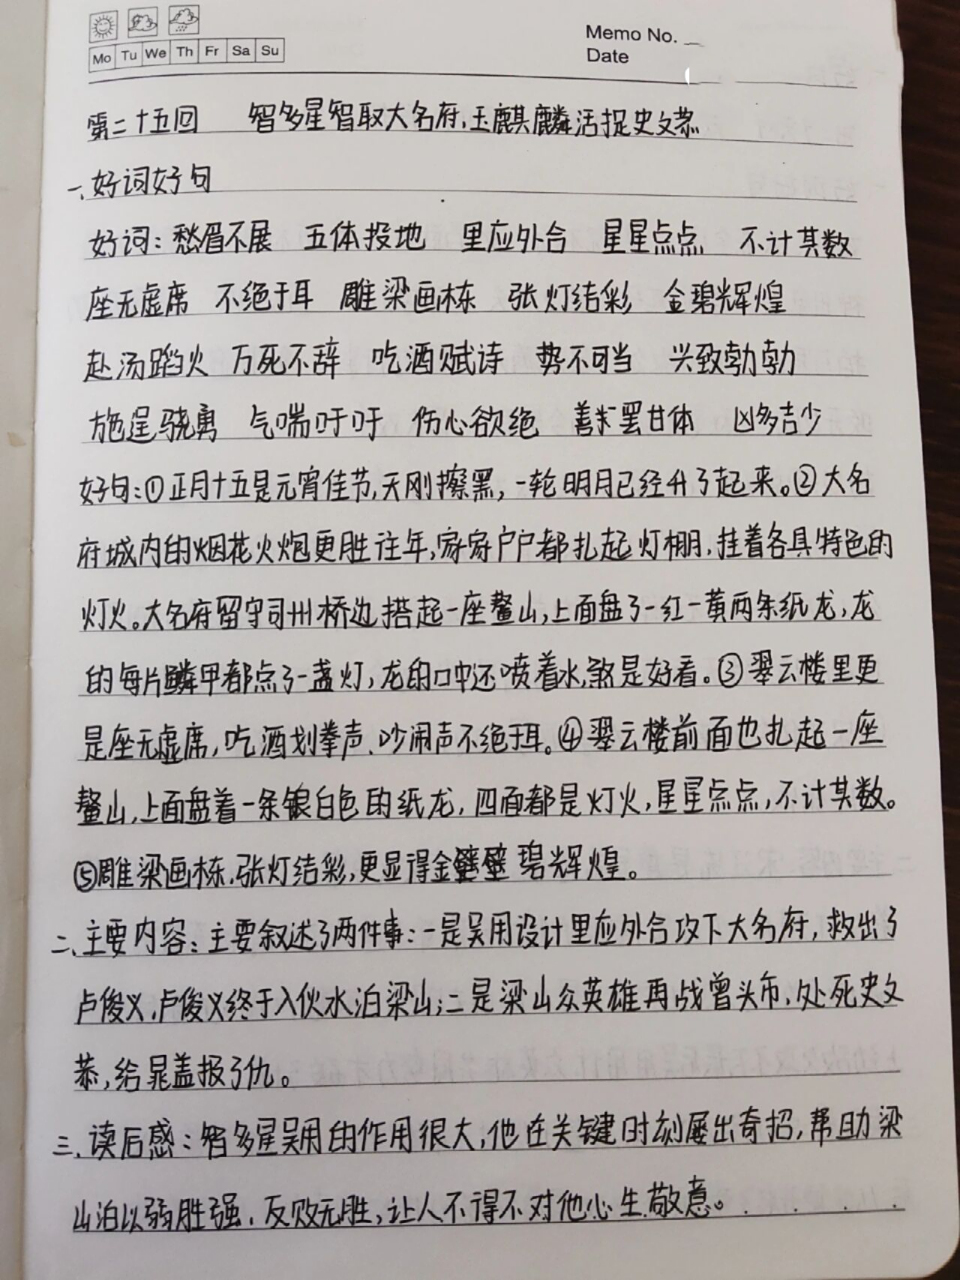 Mo Tu We Th Fr Sa Su
Memo No.
Date
第二十五回 智多星智取大名府,玉麒麟活捉史文恭
一、好词好句
好词：愁眉不展 五体投地 里应外合 星星点点 不计其数
座无虚席 不绝于耳 雕梁画栋 张灯结彩 金碧辉煌
赴汤蹈火 万死不辞 吃酒赋诗 势不可当 兴致勃勃
施逞骁勇 气喘吁吁 伤心欲绝 善罢甘体 凶多吉少
好句：①正月十五是元宵佳节,天刚擦黑,一轮明月已经升了起来。②大名
府城内的烟花火炮更胜往年,家家户户都扎起灯棚,挂着各具特色的
灯火。大名府留守司州桥边搭起一座鳌山,上面盘了一红一黄两条纸龙,龙
的每片鳞甲都点了一盏灯,龙的口中还喷着水,煞是好看。③翠云楼里更
是座无虚席,吃酒划拳声、吵闹声不绝于耳。④翠云楼前面也扎起一座
鳌山,上面盘着一条银白色的纸龙,四面都是灯火,星星点点,不计其数。
⑤雕梁画栋,张灯结彩,更显得金碧辉煌。
二、主要内容：主要叙述了两件事：一是吴用设计里应外合攻下大名府,救出了
卢俊义,卢俊义终于入伙水泊梁山；二是梁山众英雄再战曾头市,处死史文
恭,给晁盖报了仇。
三、读后感：智多星吴用的作用很大,他在关键时刻屡出奇招,帮助梁
山泊以弱胜强,反败为胜,让人不得不对他心生敬意。